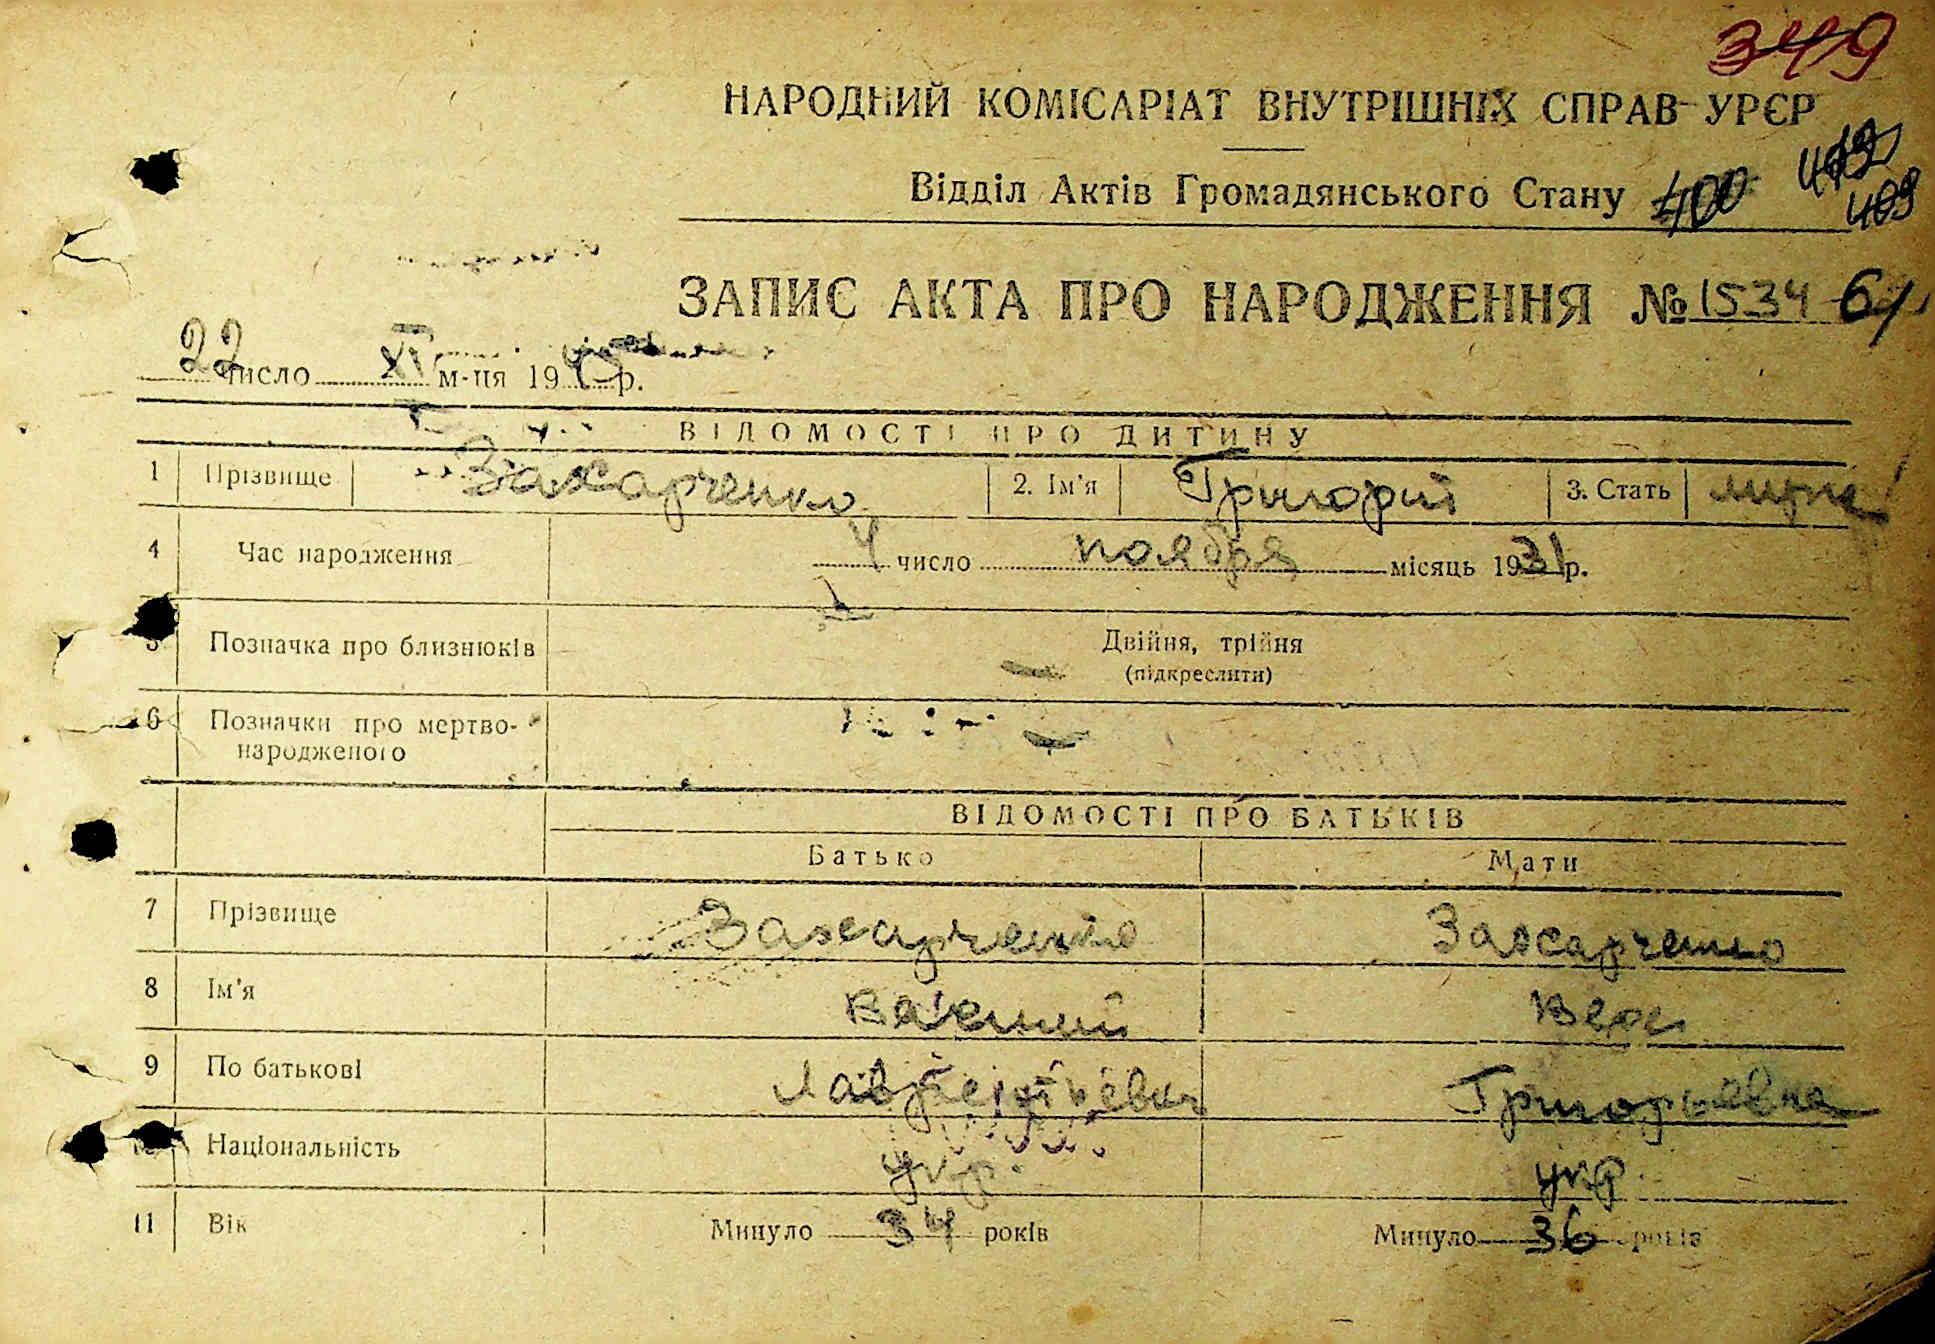 349
НАРОДНИЙ КОМІСАРІАТ ВНУТРІШНІХ СПРАВ УРЄР
Відділ Актів Громадянського Стану 400 409
ЗАПИС АКТА ПРО НАРОДЖЕННЯ № 1534
22 число XI м-ця 19 р.
ВІДОМОСТІ ПРО ДИТИНУ
1 Прізвище Захарченко 2. Ім'я Григорий 3. Стать
4 Час народження 4 число ноября місяць 1931 р.
5 Позначка про близнюків Двійня, трійня
(підкреслити)
6 Позначки про мертво-
народженого
ВІДОМОСТІ ПРО БАТЬКІВ
Батько Мати
7 Прізвище Захарченко Захарченко
8 Ім'я Вера
9 По батькові Лаврентьевич Григорьевна
10 Національність укр. укр.
11 Вік Минуло 34 років Минуло 36 років